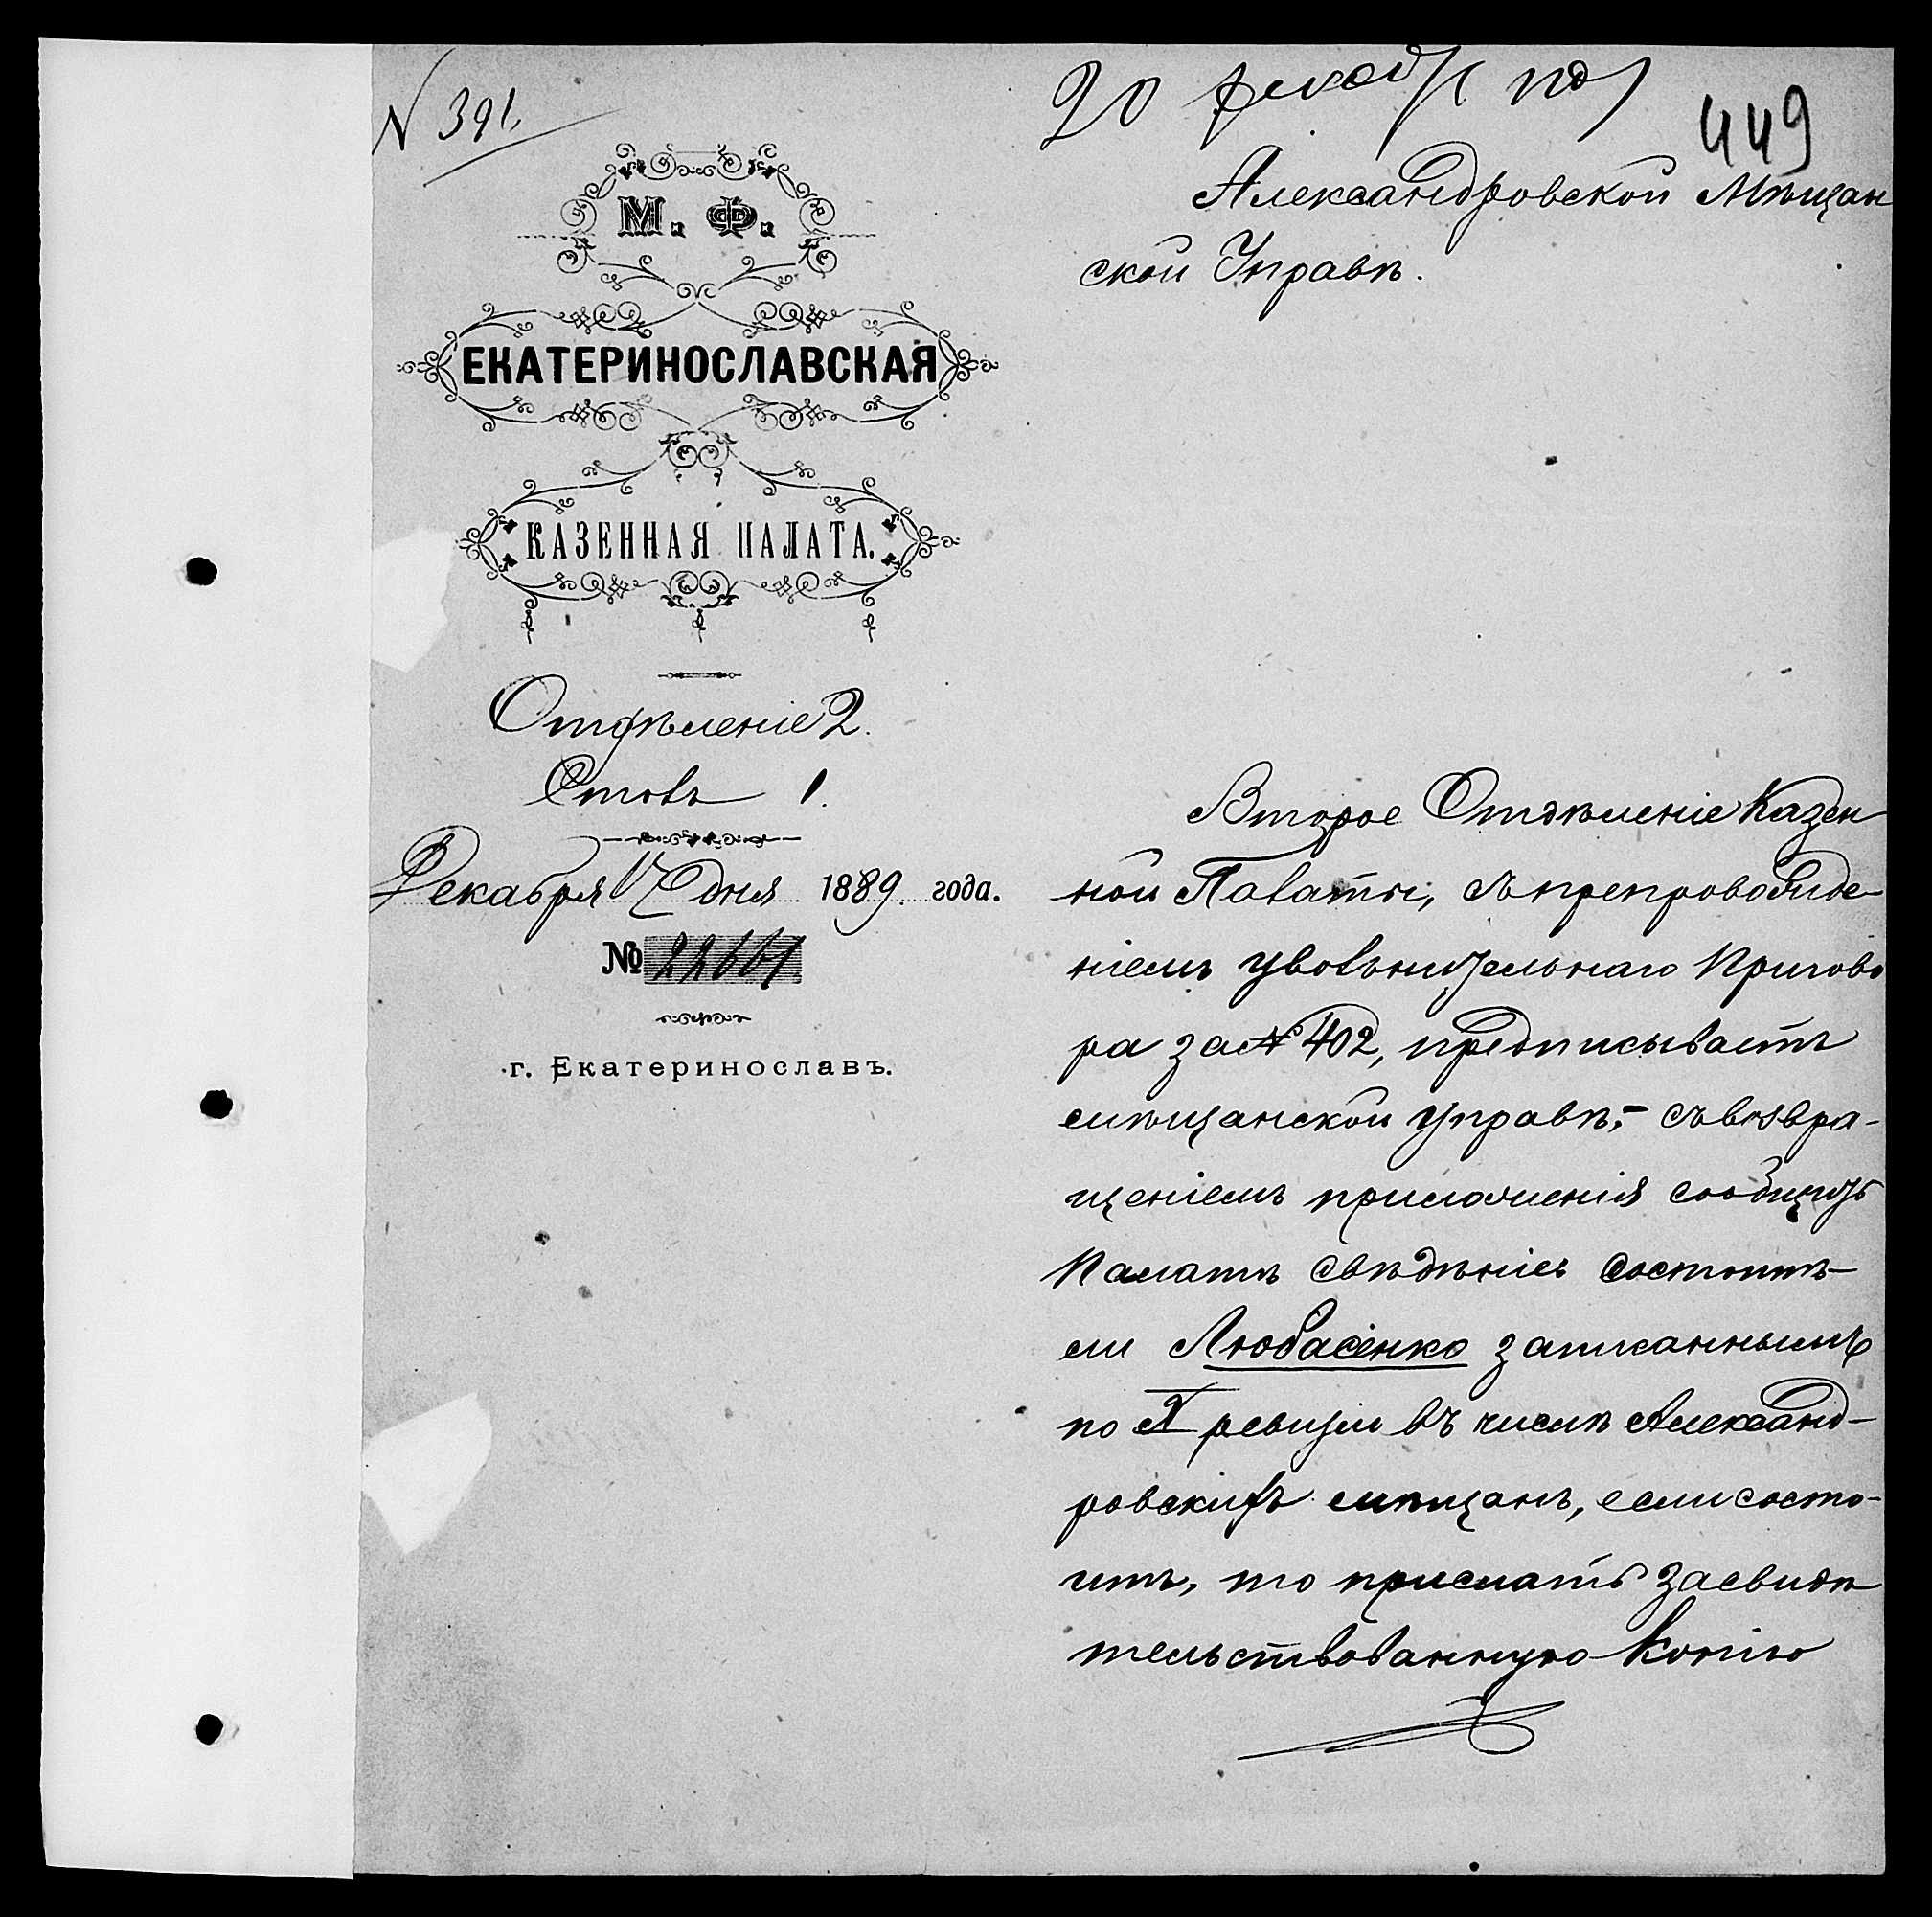 N 391.
20 декабря
449
М. Ф.
ЕКАТЕРИНОСЛАВСКАЯ
КАЗЕННАЯ ПАЛАТА.
Отдѣленіе 2.
Столъ 1.
Декабря 17 дня 1889 года.
№ 22661
г. Екатеринославъ.
Александровской Мѣщан
ской Управѣ.
Второе Отдѣленіе Казен
ной Палаты, съ препровожде-
ніемъ увольнительнаго приго­во
ра за № 402, предписываетъ
мѣщанской управѣ,- съ возвра-
щеніемъ приложенія сообщить
Палатѣ свѣдѣніе состоитъ-
ли Любасенко записаннымъ
по X ревизіи въ числѣ Александ-
ровскихъ мѣщанъ, если состо-
итъ, то прислать засвидѣ
тельствованную копію